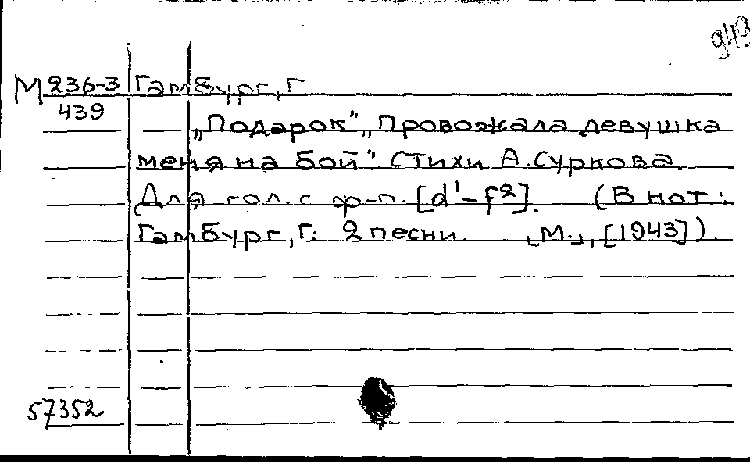 943
М 236-3 Гамбург, Г
439
„Подарок" „Провожала девушка
меня на бой". Стихи А. Суркова.
Для гол. с ф-п. [d¹-f²]. (В нот:
Гамбург, Г: 2 песни. М., [1943])
57352